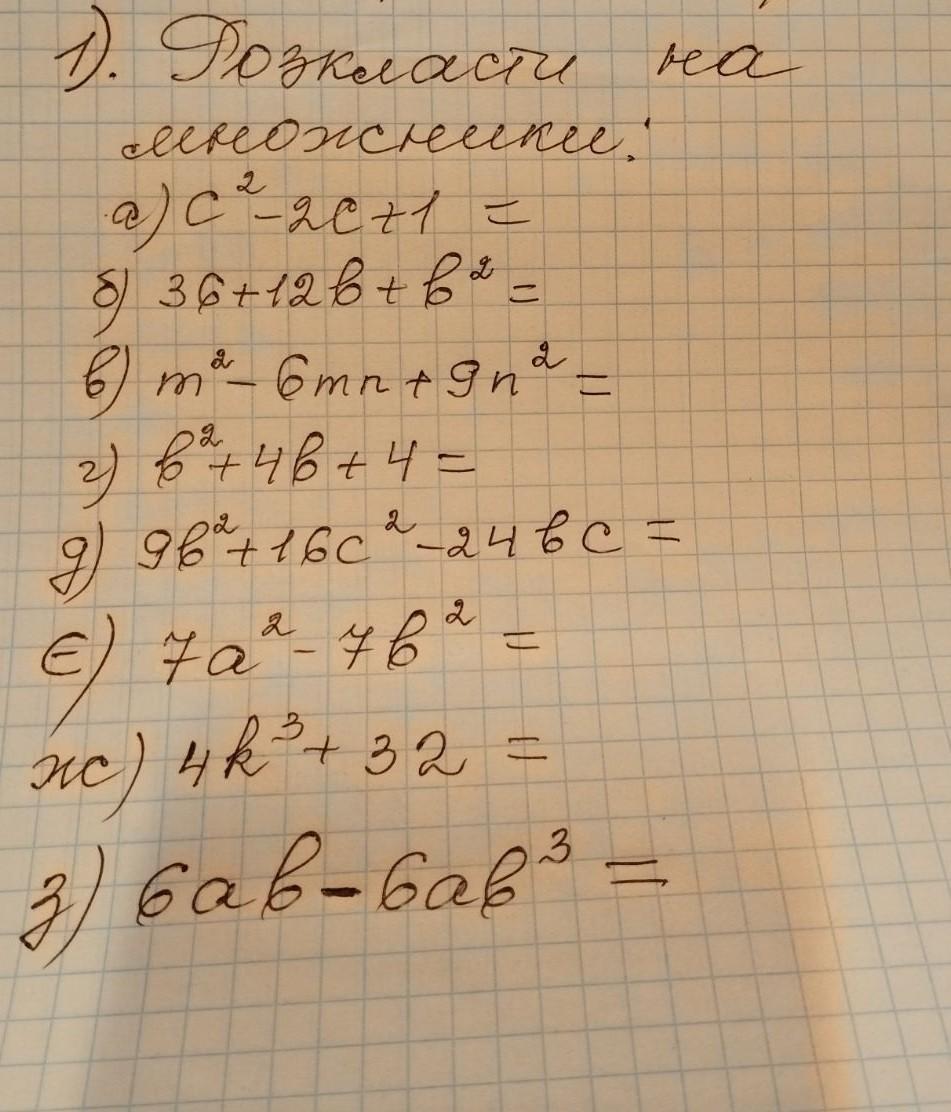 1). Розкласти на
множники:
а) c² - 2c + 1 =
б) 36 + 12b + b² =
в) m² - 6mn + 9n² =
г) b² + 4b + 4 =
д) 9b² + 16c² - 24bc =
є) 7a² - 7b² =
ж) 4k³ + 32 =
з) 6ab - 6ab³ =